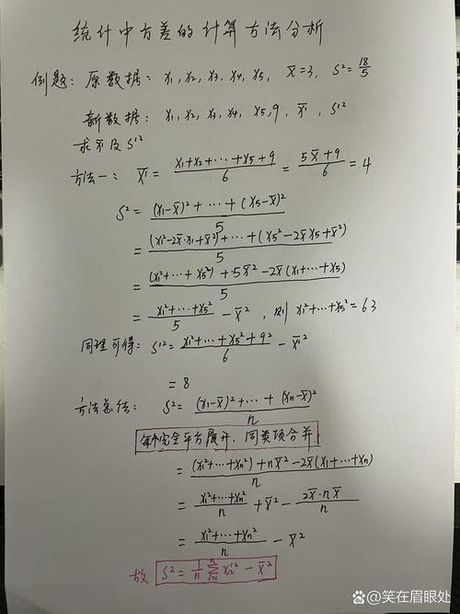 统计中方差的计算方法分析
例题: 原数据: x₁, x₂, x₃, x₄, x₅, x̄=3, S²=18/5
新数据: x₁, x₂, x₃, x₄, x₅, 9, x̄', S'²
求x̄'及S'²
方法一: x̄' = (x₁+x₂+…+x₅+9)/6 = (5x̄+9)/6 = 4
S² = ((x₁-x̄)²+…+(x₅-x̄)²)/5
= ((x₁²-2x̄·x₁+x̄²)+…+(x₅²-2x̄x₅+x̄²))/5
= ((x₁²+…+x₅²)+5x̄²-2x̄(x₁+…+x₅))/5
= (x₁²+…+x₅²)/5 - x̄², 则 x₁²+…+x₅²=63
同理可得: S'² = (x₁²+…+x₅²+9²)/6 - x̄'²
= 8
方法总结: S² = ((x₁-x̄)²+…+(xₙ-x̄)²)/n
每个完全平方展开, 同类项合并
= ((x₁²+…+xₙ²)+nx̄²-2x̄(x₁+…+xₙ))/n
= (x₁²+…+xₙ²)/n + x̄² - (2x̄·nx̄)/n
= (x₁²+…+xₙ²)/n - x̄²
故 S² = 1/n ∑ xₙ² - x̄²
笑在眉眼处